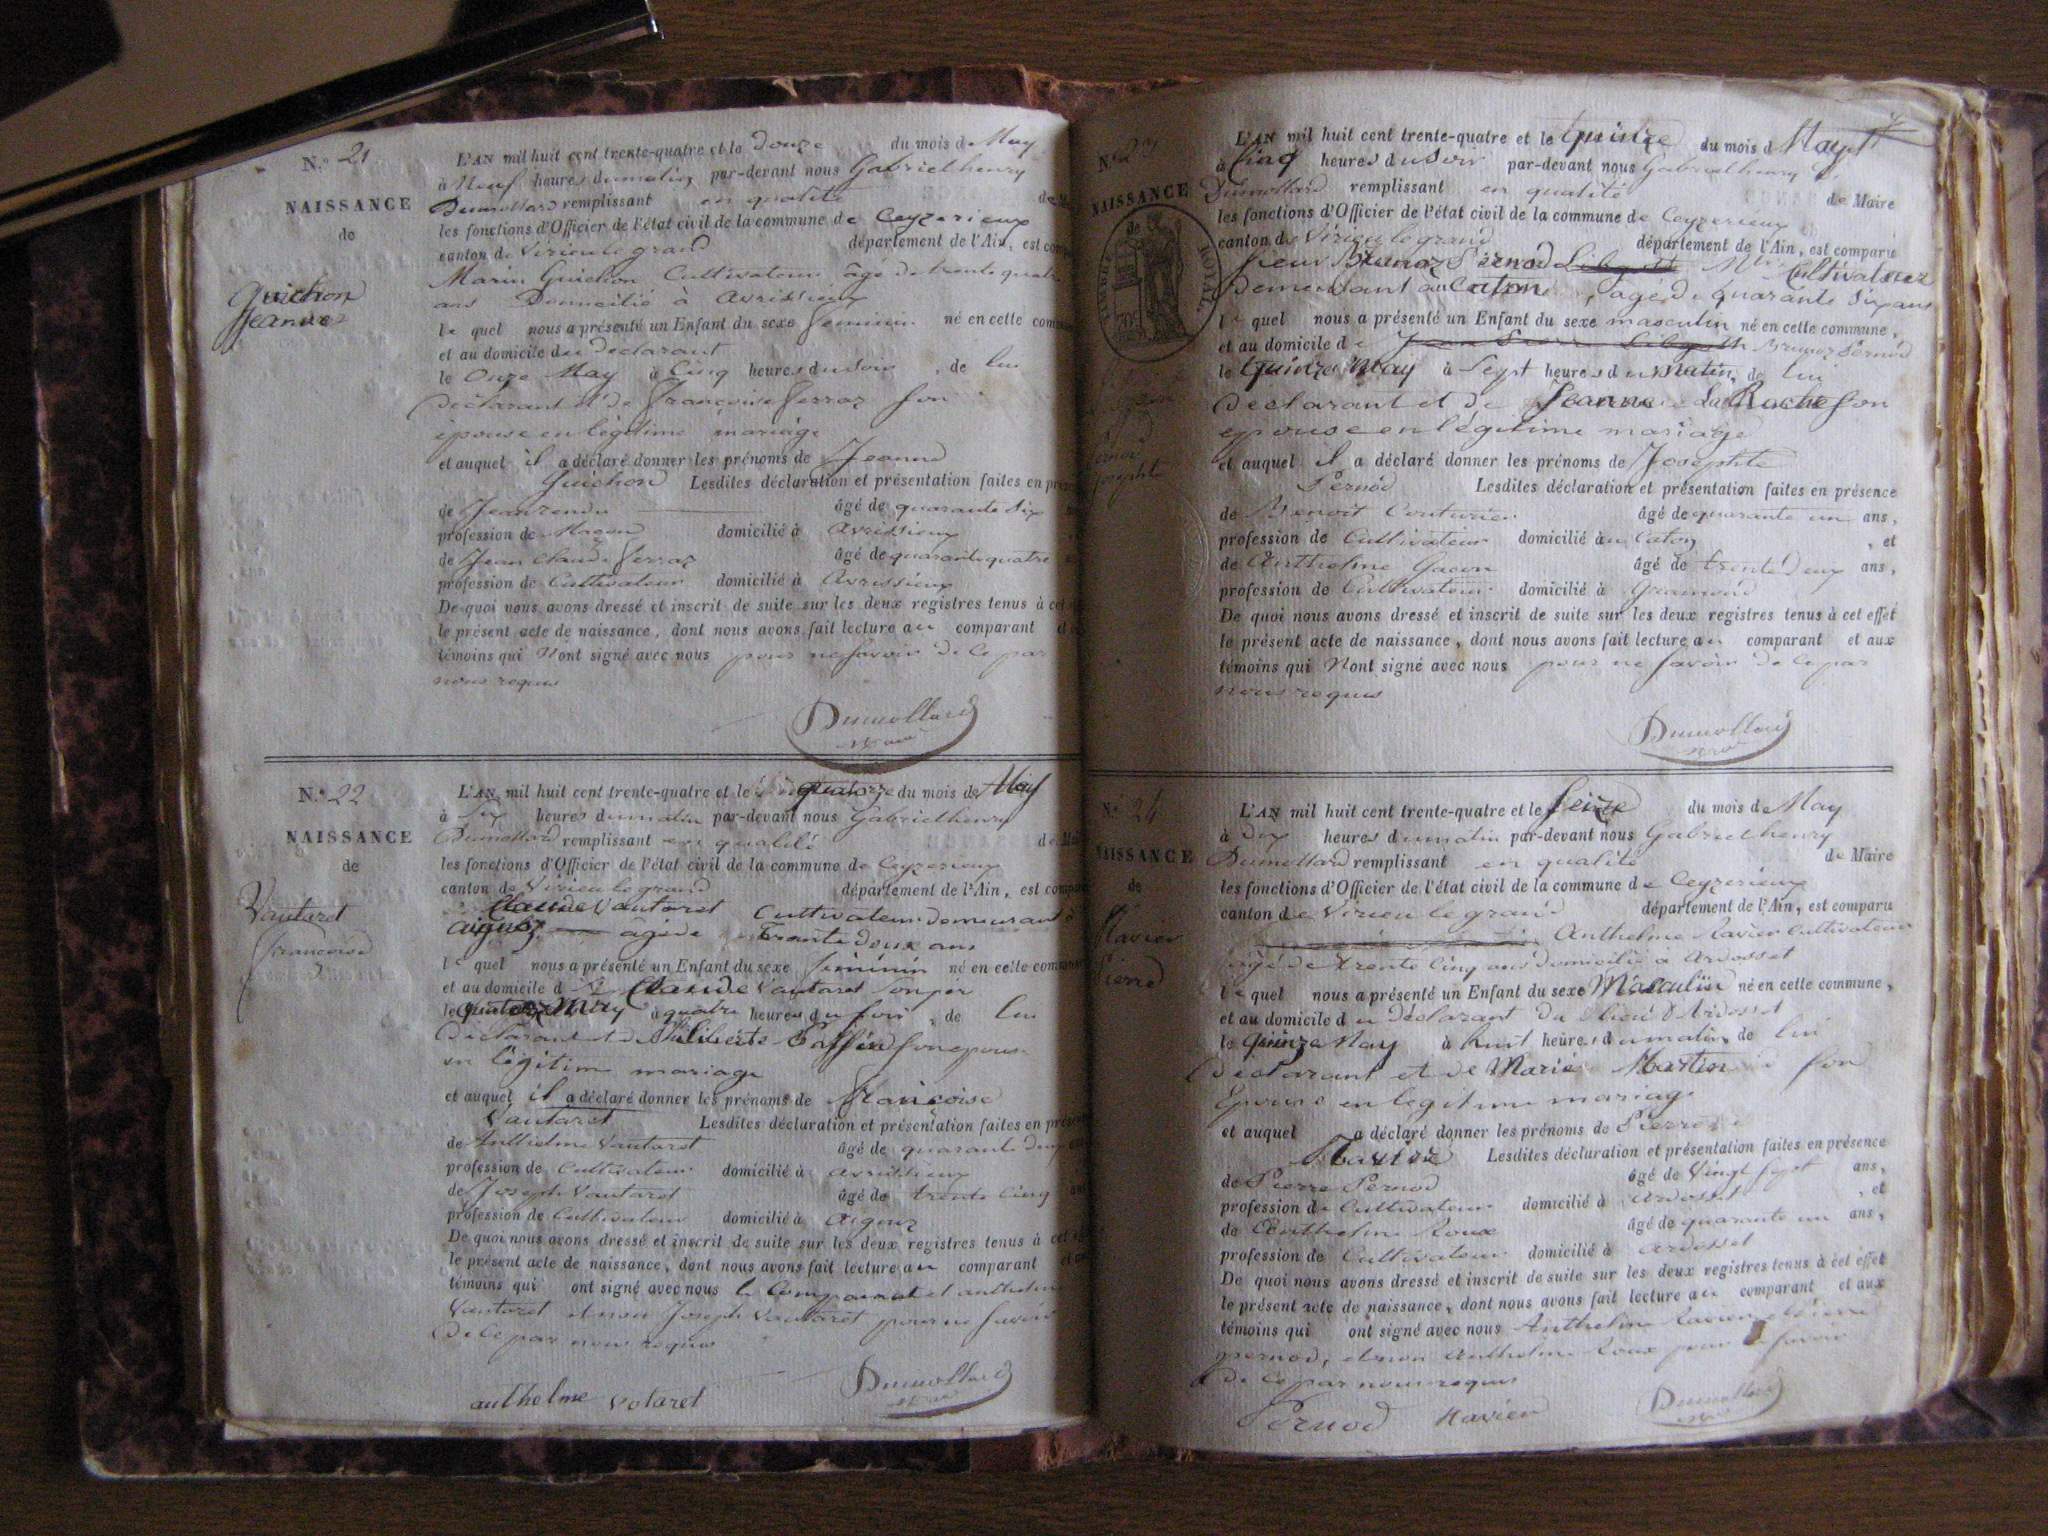 N.º 21
NAISSANCE
de
Guichon
Jeanne
L'AN mil huit cent trente-quatre et le douze du mois de May
à Neuf heures du matin par-devant nous Gabriel henry
Dumollard remplissant en qualité de
les fonctions d'Officier de l'état civil de la commune de Ceyzerieux
canton de Virieu le grand département de l'Ain, est
Marin Guichon Cultivateur âgé de trente quatre
ans Domicilié à Avrissieux
le quel nous a présenté un Enfant du sexe feminin né en cette
et au domicile du declarant
le Onze May à Cinq heures du soir, de lui
declarant et de Françoise Perraz son
épouse en légitime mariage
et auquel il a déclaré donner les prénoms de Jeanne
Guichon Lesdites déclaration et présentation faites en
de Jean rendu âgé de quarante six
profession de Maçon domicilié à avrissieux
de Jean Claude Perraz âgé de quarante quatre
profession de Cultivateur domicilié à Avrissieux
De quoi vous avons dressé et inscrit de suite sur les deux registres tenus à cet
le présent acte de naissance, dont nous avons fait lecture au comparant et
témoins qui N'ont signé avec nous pour ne savoir de ce par
nous requis
Dumollard
N.º 22
NAISSANCE
de
Vautaret
françoise
L'AN mil huit cent trente-quatre et le quatorze du mois de May
à Six heures du matin par-devant nous Gabriel henry
Dumollard remplissant en qualité de
les fonctions d'Officier de l'état civil de la commune de Ceyzerieux
canton de Virieu le grand département de l'Ain, est
Claude Vautaret Cultivateur demeurant à
aignoz agé de trente deux ans
le quel nous a présenté un Enfant du sexe féminin né en cette commune
et au domicile d Claude Vautaret son per
le quatorze May à quatre heures du soir, de lui
Déclarant et de Philiberte son epouse
en légitim mariage
et auquel il a déclaré donner les prénoms de Françoise
Vautaret Lesdites déclaration et présentation faites en
de Anthelme Vautaret âgé de quarante deux
profession de Cultivateur domicilié à avrissieux
de Joseph Vautaret âgé de trente cinq
profession de Cultivateur domicilié à aignoz
De quoi nous avons dressé et inscrit de suite sur les deux registres tenus à cet
le présent acte de naissance, dont nous avons fait lecture au comparant
témoins qui ont signé avec nous le Comparant et anthelme
Vautaret et non Joseph Vautaret pour ne savoir
De Ce par nous requis
Dumollard
anthelme votaret
N.º 23
NAISSANCE
de
TIMBRE ROYAL
Pernod
Josephte
L'AN mil huit cent trente-quatre et le quinze du mois d May
à Cinq heures du soir par-devant nous Gabriel henry
Dumollard remplissant en qualité de Maire
les fonctions d'Officier de l'état civil de la commune de Ceyzerieux
canton de Virieu le grand département de l'Ain, est comparu
Sieur Pernod Cultivateur
Demeurant au Caton, agé de quarante six ans
le quel nous a présenté un Enfant du sexe masculin né en cette commune,
et au domicile de Pernod
le quinze May à Sept heures du matin, de lui
declarant et de Jeanne La Roche son
epouse en légitime mariage
et auquel il a déclaré donner les prénoms de Josephte
Pernod Lesdites déclaration et présentation faites en présence
de Benoit Couturier âgé de quarante un ans,
profession de Cultivateur domicilié au Caton, et
de Anthelme Gacon âgé de trente Deux ans,
profession de Cultivateur domicilié à Gramond
De quoi nous avons dressé et inscrit de suite sur les deux registres tenus à cet effet
le présent acte de naissance, dont nous avons fait lecture au comparant et aux
témoins qui N'ont signé avec nous pour ne savoir de ce par
nous requis
Dumollard
N.º 24
NAISSANCE
de
Ravier
Pierre
L'AN mil huit cent trente-quatre et le Seize du mois de May
à Dix heures du matin par-devant nous Gabriel henry
Dumollard remplissant en qualité de Maire
les fonctions d'Officier de l'état civil de la commune de Ceyzerieux
canton de Virieu le grand département de l'Ain, est comparu
Anthelme Ravier Cultivateur
agé de trente Cinq ans domicilié a Ardosset
le quel nous a présenté un Enfant du sexe Masculin né en cette commune,
et au domicile du déclarant Du lieu d'Ardosset
le quinze May à huit heures du matin de lui
Declarant et de Marie Martin son
Epouse en legitime mariage
et auquel a déclaré donner les prénoms de Pierre
Ravier Lesdites déclaration et présentation faites en présence
de Pierre Pernod âgé de Vingt Sept ans,
profession de Cultivateur domicilié à Ardosset, et
de Anthelme Roux âgé de quarante un ans,
profession de Cultivateur domicilié à ardosset
De quoi nous avons dressé et inscrit de suite sur les deux registres tenus à cet effet
le présent acte de naissance, dont nous avons fait lecture au comparant et aux
témoins qui ont signé avec nous Anthelme Ravier et Pierre
pernod, et non Anthelme Roux pour ne savoir
De Ce par nous requis
Pernod Ravier Dumollard